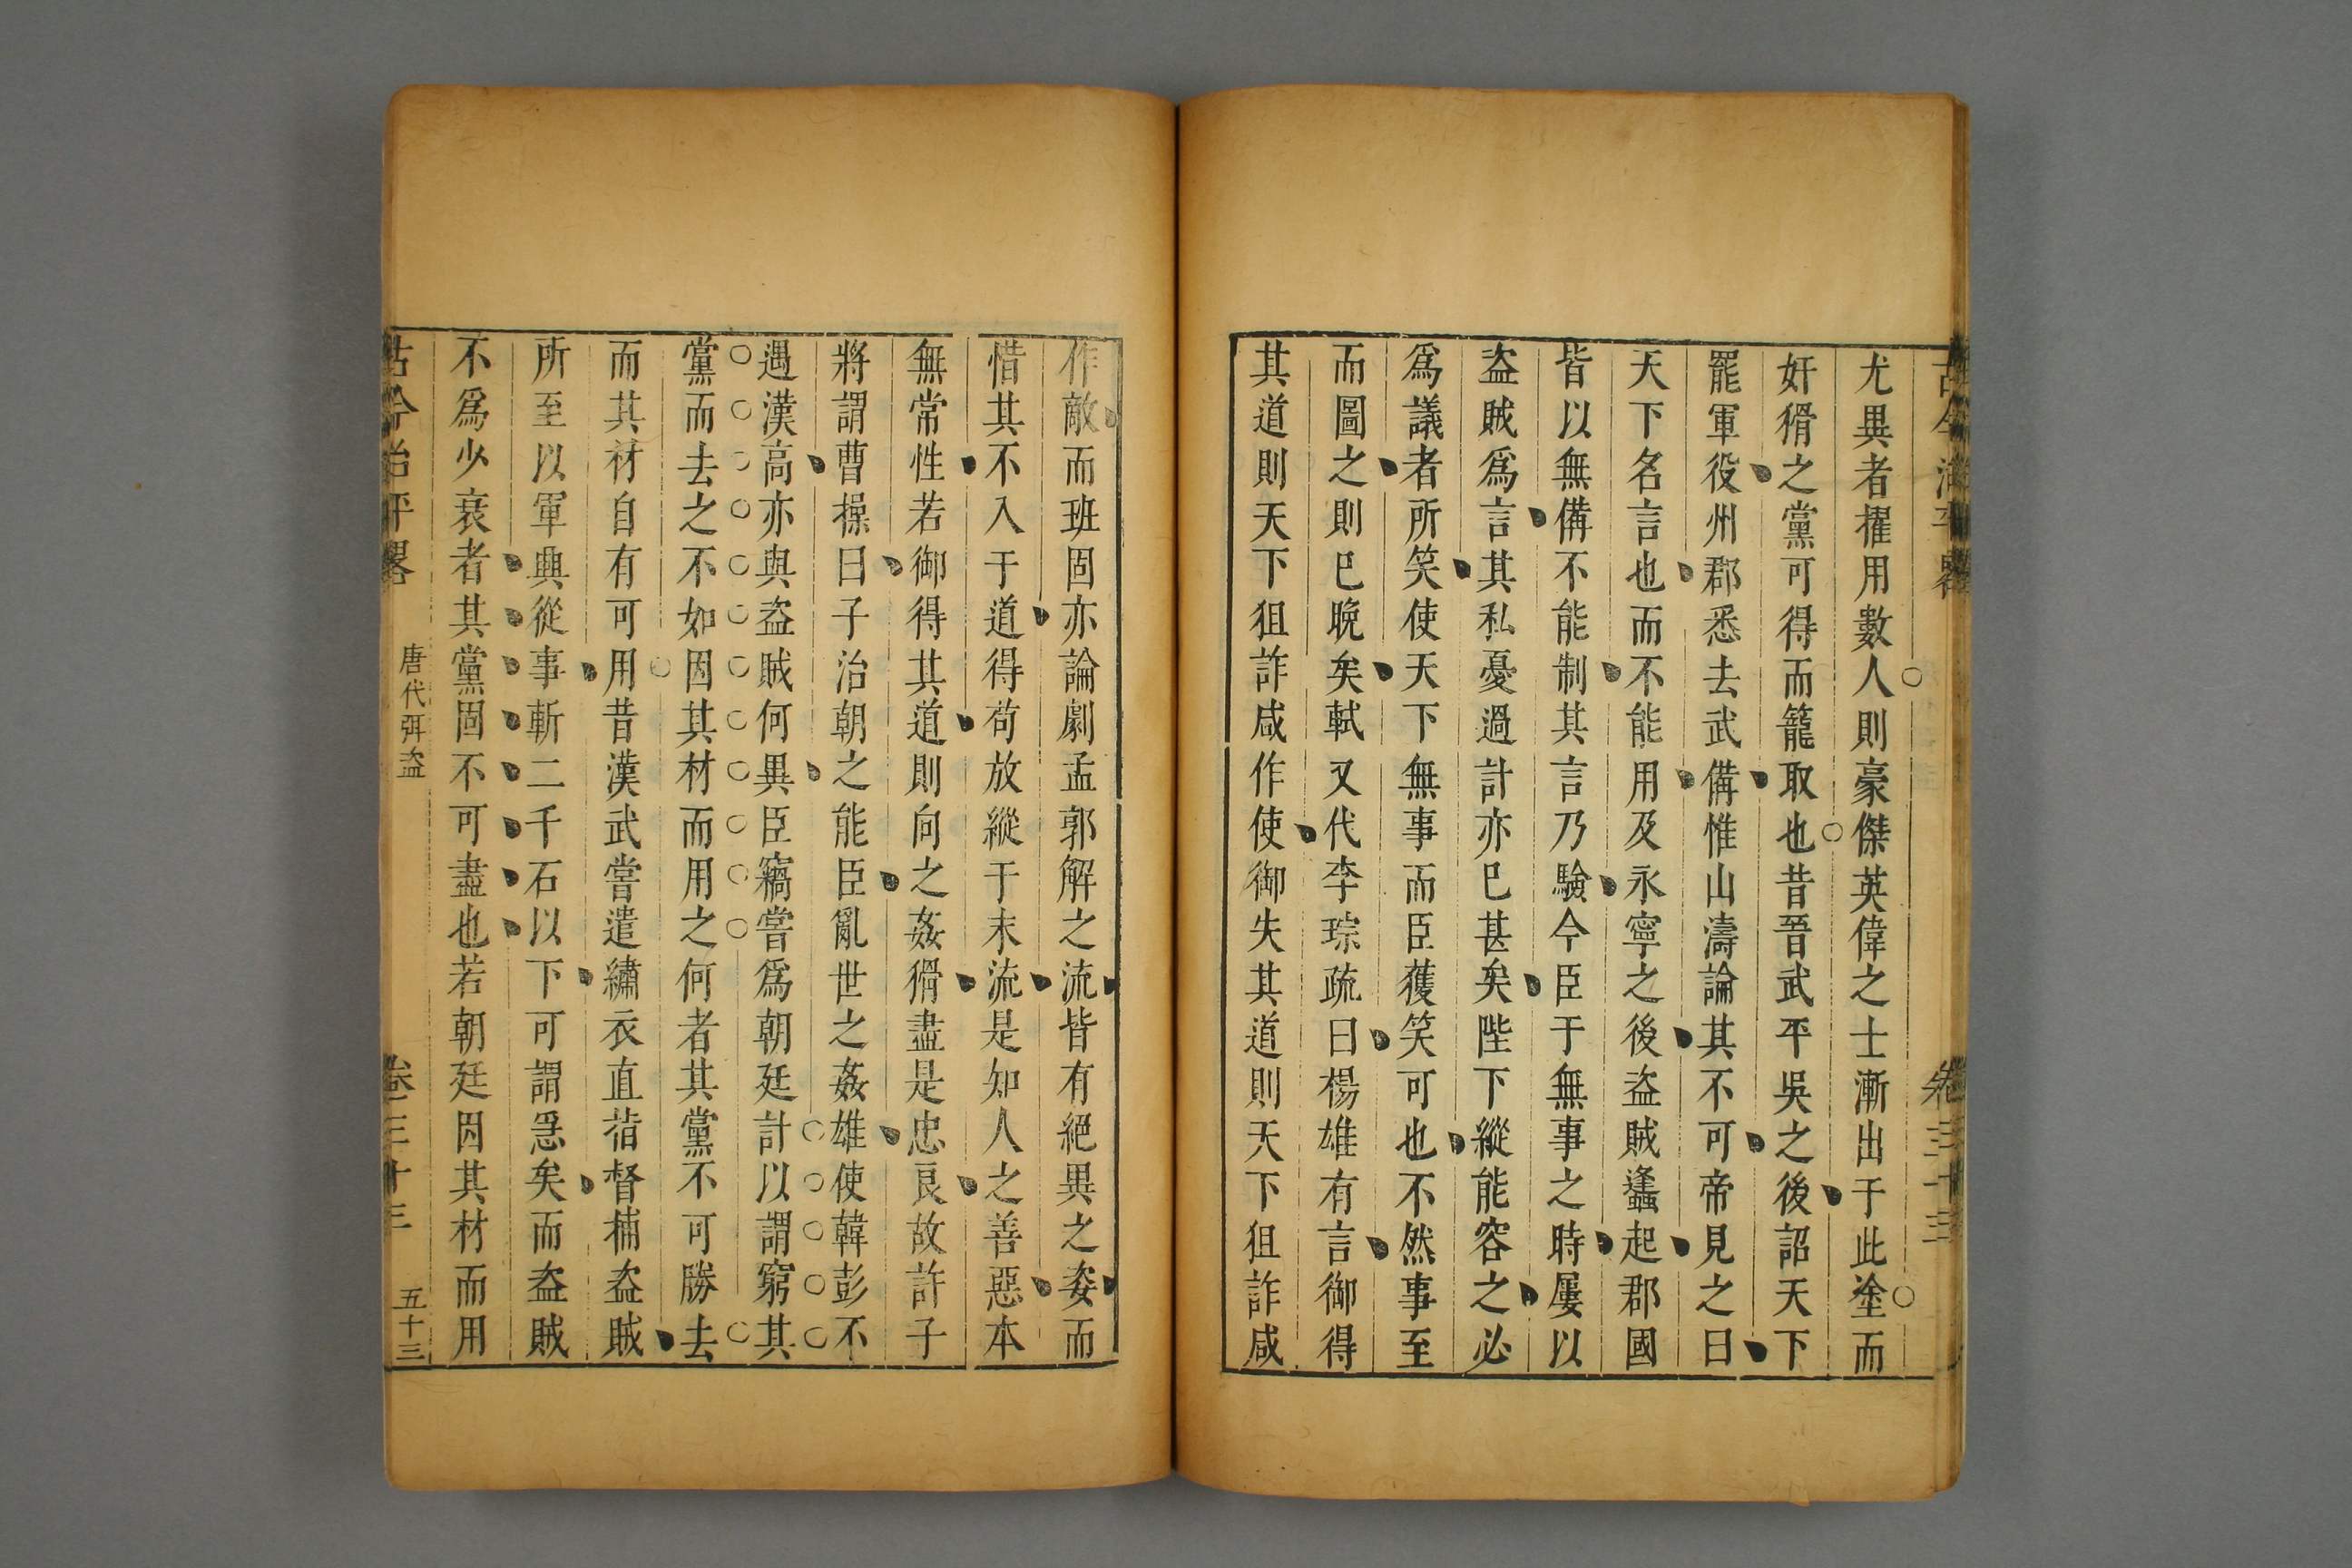 古今治平畧
卷三十三
尤異者擢用數人則豪傑英偉之士漸出于此塗而
奸猾之黨可得而籠取也昔晉武平吳之後詔天下
罷軍役州郡悉去武備惟山濤論其不可帝見之曰
天下名言也而不能用及永寧之後盗賊蠭起郡國
皆以無備不能制其言乃驗今臣于無事之時屢以
盗賊爲言其私憂過計亦已甚矣陛下縱能容之必
爲議者所笑使天下無事而臣獲笑可也不然事至
而圖之則已晚矣軾又代李琮疏曰楊雄有言御得
其道則天下狙詐咸作使御失其道則天下狙詐咸
作敵而班固亦論劇孟郭解之流皆有絕異之姿而
惜其不入于道得苟放縱于末流是知人之善惡本
無常性若御得其道則向之姦猾盡是忠良故許子
將謂曹操曰子治朝之能臣亂世之姦雄使韓彭不
遇漢高亦與盗賊何異臣竊嘗爲朝廷計以謂窮其
黨而去之不如因其材而用之何者其黨不可勝去
而其材自有可用昔漢武嘗遣繡衣直指督捕盗賊
所至以軍興從事斬二千石以下可謂急矣而盗賊
不爲少衰者其黨固不可盡也若朝廷因其材而用
古今治平畧
唐代弭盗
卷三十三
五十三